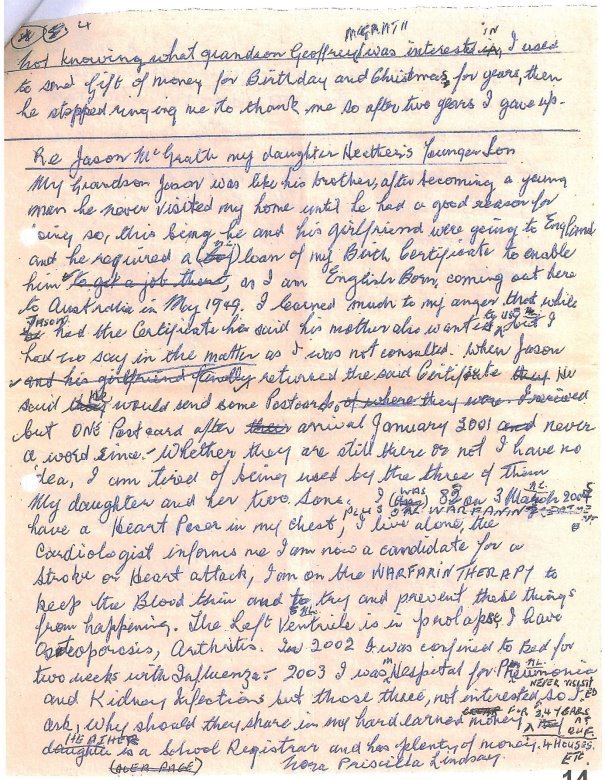 4
McGRATH IN
Not knowing what grandson Geoffrey was interests in, I used
to send Gift of money for Birthday and Christmas, for years, then
he stopped ringing me to thank me so after two years I gave up.
Re Jason McGrath my daughter Heather's Younger Son
My Grandson Jason was like his brother, after becoming a young
man he never visited my home until he had a good reason for
so, this being he and his girlfriend were going to England
and he required a loan of my Birth Certificate to enable
him to get a job there, as I am English Born, coming out here
to Australia in May 1949, I learned much to my anger that while
JASON had the Certificate he said his mother also wanted to use it, but I
had no say in the matter as I was not consulted. When Jason
and his girlfriend finally returned the said Certificate they He
said they he would send some Postcards, of where they were I received
but ONE Postcard after their arrival January 2001 and never
a word since. Whether they are still there or not I have no
idea, I am tired of being used by the three of them
My daughter and her two sons. I (WAS) 85 on 3 March 2004
PLUS WARFARIN
have a Heart Pacer in my chest, I live alone, the
Cardiologist informs me I am now a candidate for a
stroke or Heart attack, I am on the WARFARIN THERAPY to
keep the Blood thin and to try and prevent these things
from happening. The Left Ventricle is in prolapse, I have
Osteoporosis, Arthritis. In 2002 I was confined to Bed for
two weeks with Influenza - 2003 I was in Hospital for Pneumonia
and Kidney Infections but those three, not interested so I
NEVER VISITED
FOR 3, 4 YEARS
ask, why should they share in my hard earned money
HEATHER
daughter is a School Registrar and has plenty of money. 4 Houses. ETC
(OVER PAGE) Nora Priscilla Lindsay.
14